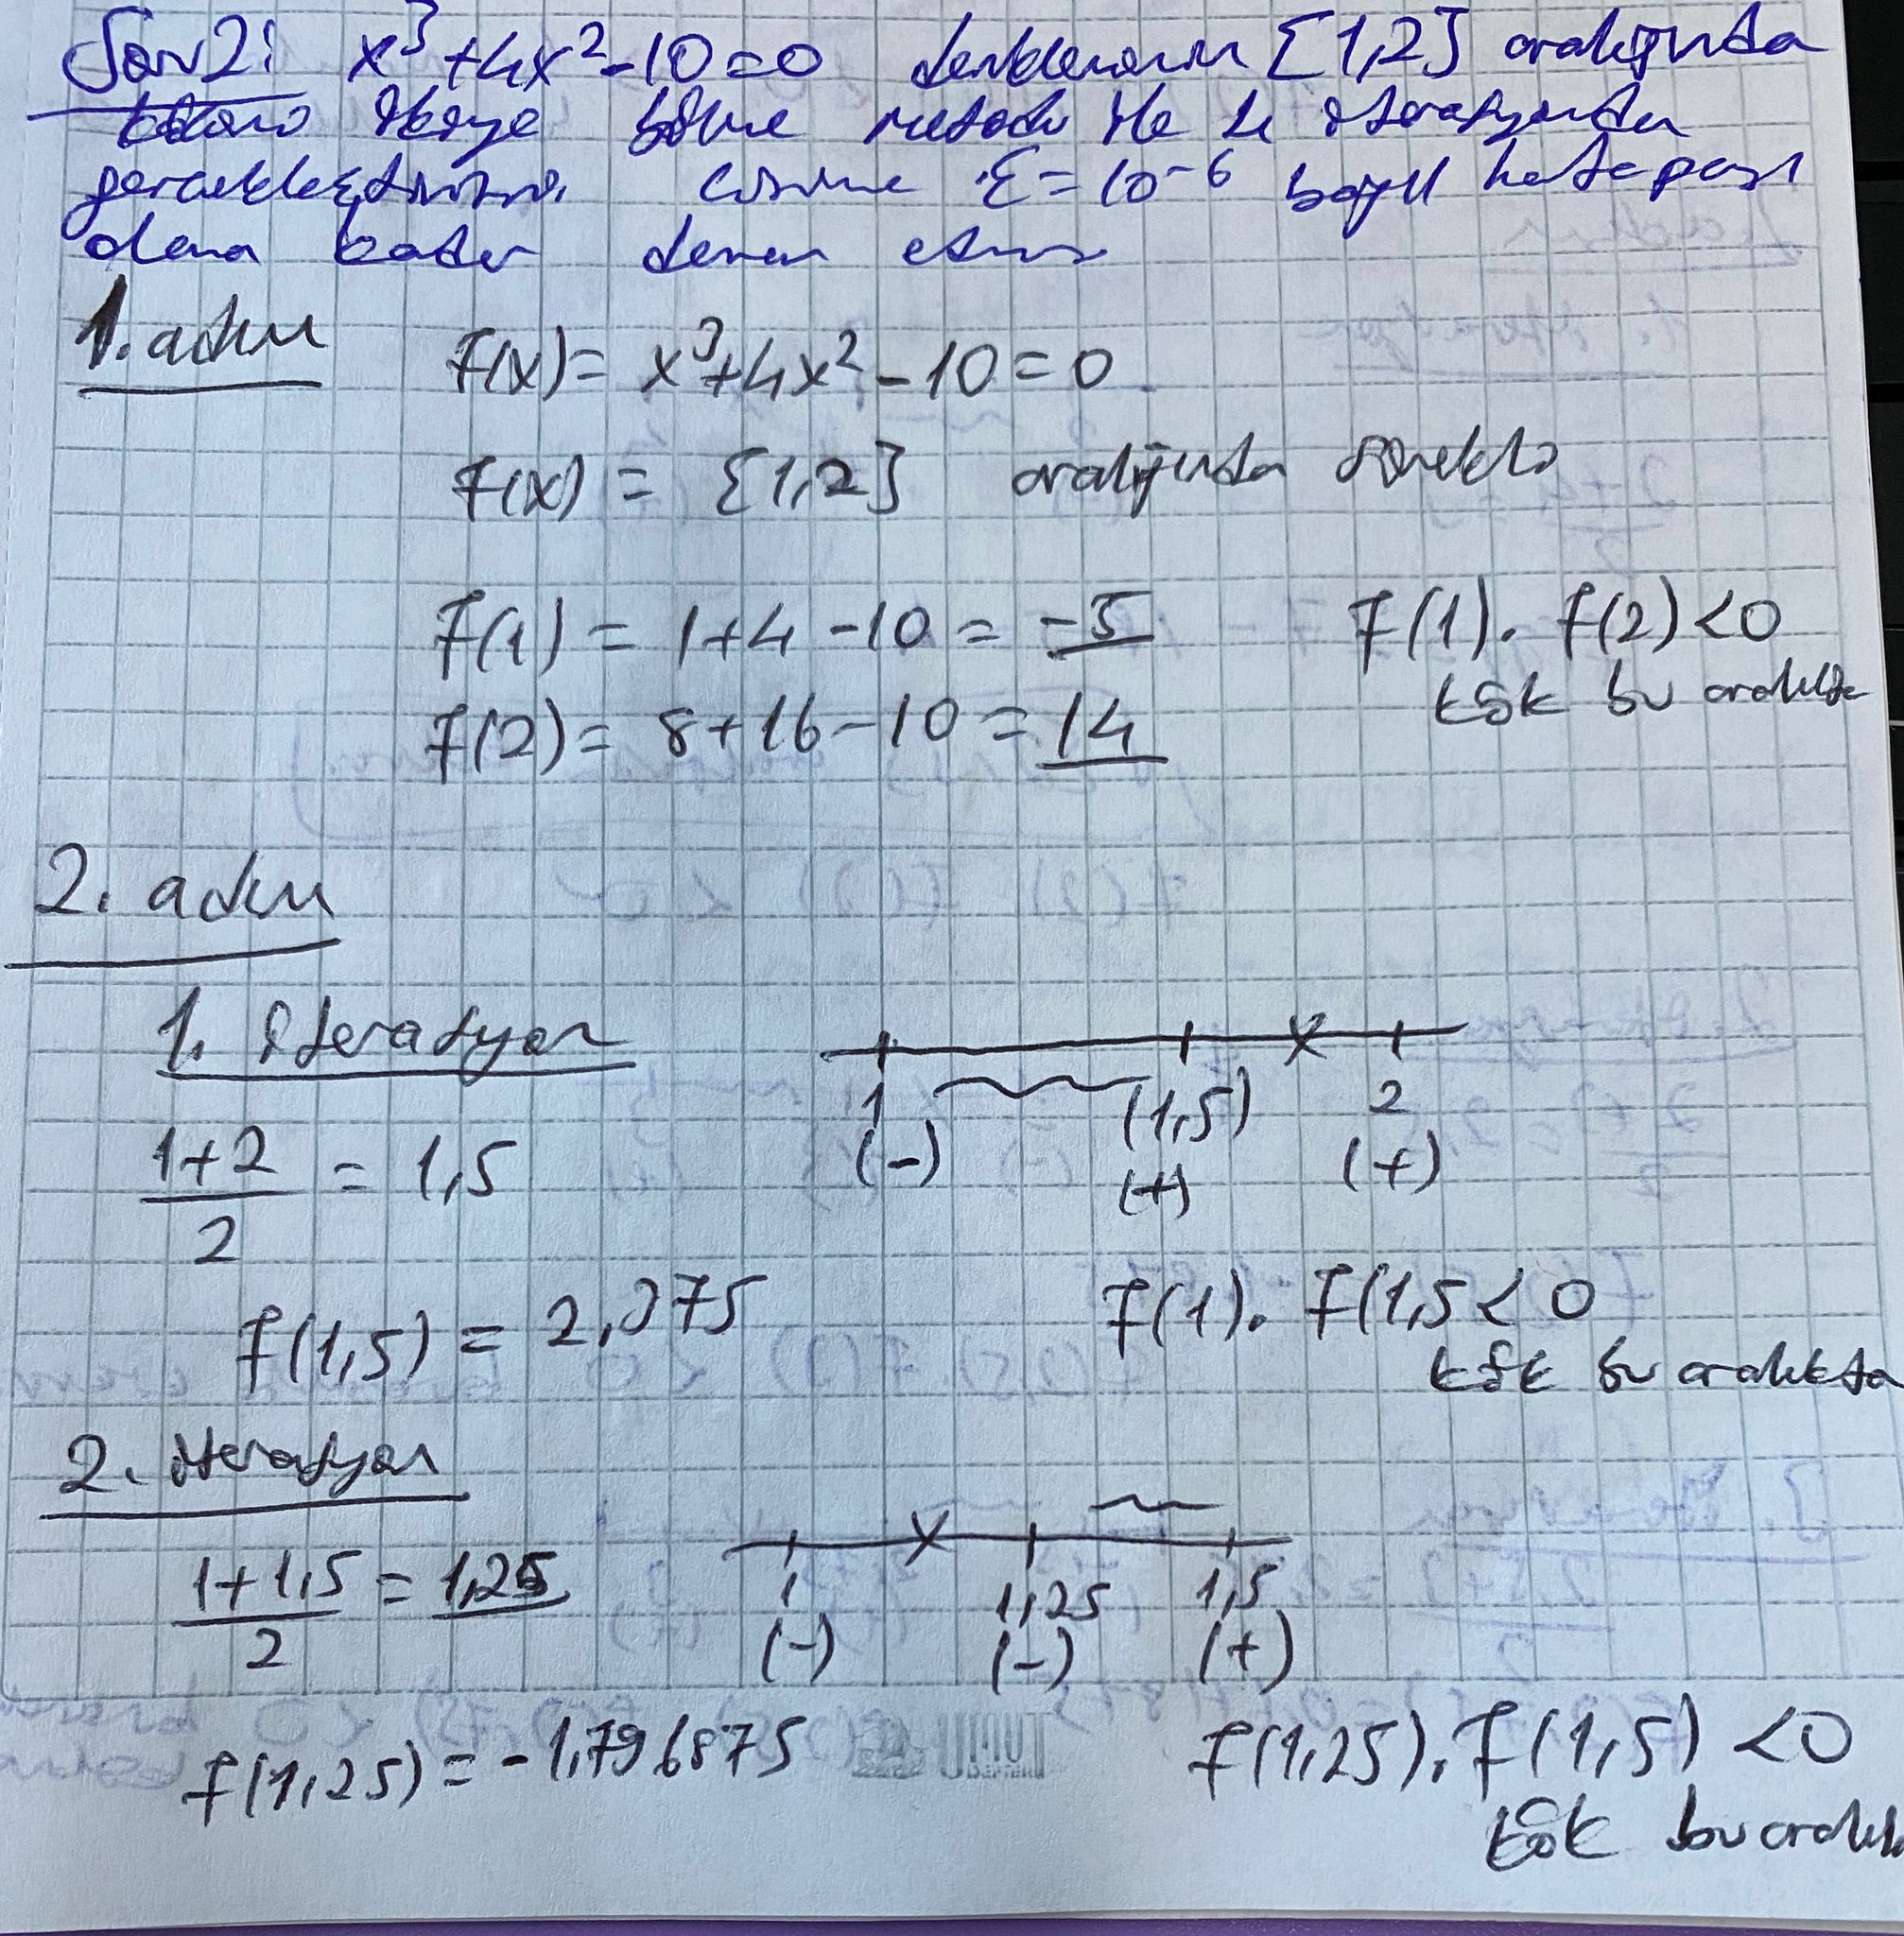 Soru 2: x³+4x²-10=0 denkleminin [1,2] aralığında
kökünü ikiye bölme metodu ile 4 iterasyonda
gerçekleştiriniz. Çözüme ε=10⁻⁶ bağıl hata payı
olana kadar devam ediniz
1. adım
F(x)= x³+4x²-10=0
F(x) = [1,2] aralığında sürekli
F(1) = 1+4-10 = -5 F(1). F(2)<0
F(2)= 8+16-10 = 14 kök bu aralıkta
2. adım
1. iterasyon
1 (1,5) 2
(-) (+) (+)
1+2/2 = 1,5
F(1,5) = 2,375 F(1). F(1,5<0
kök bu aralıkta
2. iterasyon
1+1,5/2 = 1,25
1 1,25 1,5
(-) (-) (+)
F(1,25)=-1,796875 F(1,25).F(1,5)<0
kök bu aralık
UMUT
DEFTER